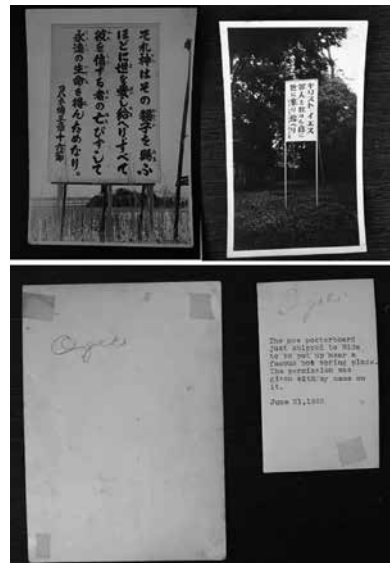 それ神はその獨子を賜ふ
ほどに世を愛し給へりすべて
彼を信ずる者の亡びずして
永遠の生命を得んためなり。
三章十六節
キリスト イエス
罪人を救はん爲に
世に來り給へり
The new posterboard
just shipped to
to be put up near a
famous hot spring place.
The permission was
given with my name on
it.
June 21,